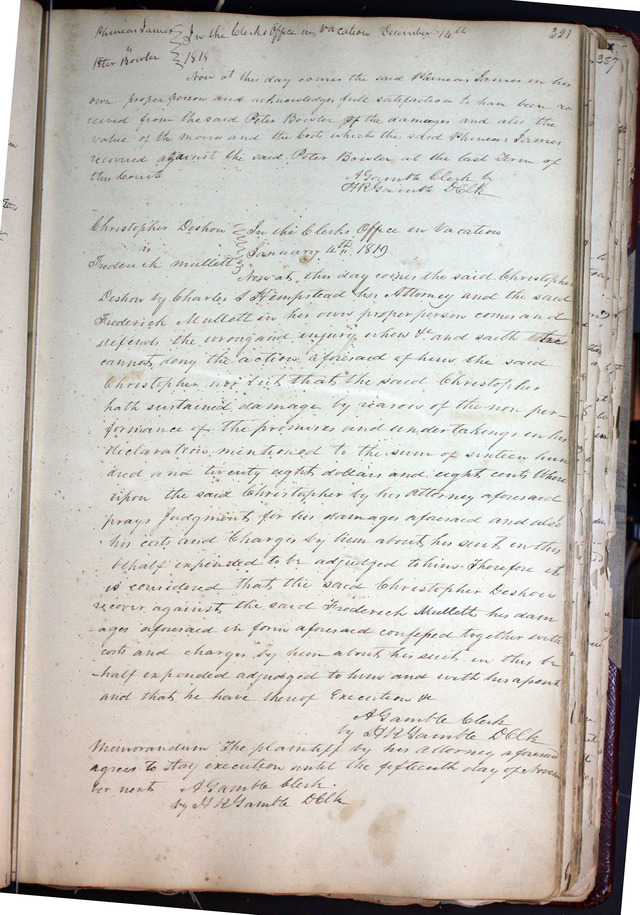 Phineas James } In the Clerks Office in Vacation December 14th 321
vs
Peter Bowler } 1818
Now at this day comes the said Phineas James in his
own proper person and acknowledges full satisfaction to have been re
ceived from the said Peter Bowler of the damages and also the
value of the and the Costs which the said Phineas James
recovered against the said Peter Bowler at the last Term of
this Court
A Gamble Clerk by
H R Gamble DClk
Christopher Deshow } In the Clerks Office in Vacation
vs
Frederick Mullett } January 4th 1819
Now at this day comes the said Christopher
Deshow by Charles S Hempstead his Attorney and the said
Frederick Mullett in his own proper person comes and
defends the wrong and injury when &c and saith he
cannot deny the action aforesaid of him the said
Christopher nor but that the said Christopher
hath sustained damage by reason of the non per-
formance of the promises and undertakings in his
declaration mentioned to the sum of sixteen hun
dred and twenty eight dollars and eight cents Where
upon the said Christopher by his attorney aforesaid
prays Judgment for his damages aforesaid and also
his costs and Charges by him about his suit in this
behalf expended to be adjudged to him. Therefore it
is considered that the said Christopher Deshow
recover against the said Frederick Mullett his dam
-ages aforesaid in form aforesaid confessed together with
costs and charges by him about his suit in this be
half expended adjudged to him and with his assent
and that he have thereof Execution &c
A Gamble Clerk
by H R Gamble DClk
Memorandum The plaintiff by his Attorney aforesaid
agrees to stay execution until the fifteenth day of Novem
ber next A Gamble Clerk.
by H R Gamble DClk
357